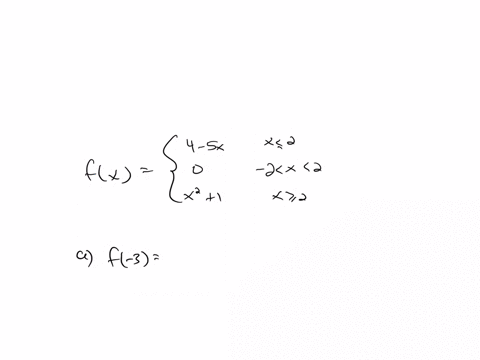 f(x) = { 4-5x x≤2
0 -2<x<2
x²+1 x≥2
a) f(-3)=